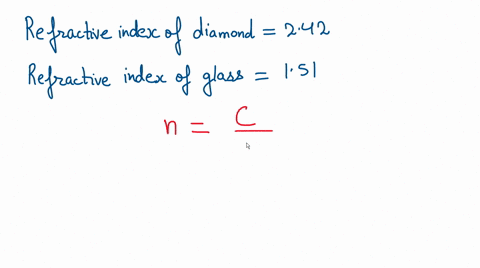 Refractive index of diamond = 2.42
Refractive index of glass = 1.51
n = C